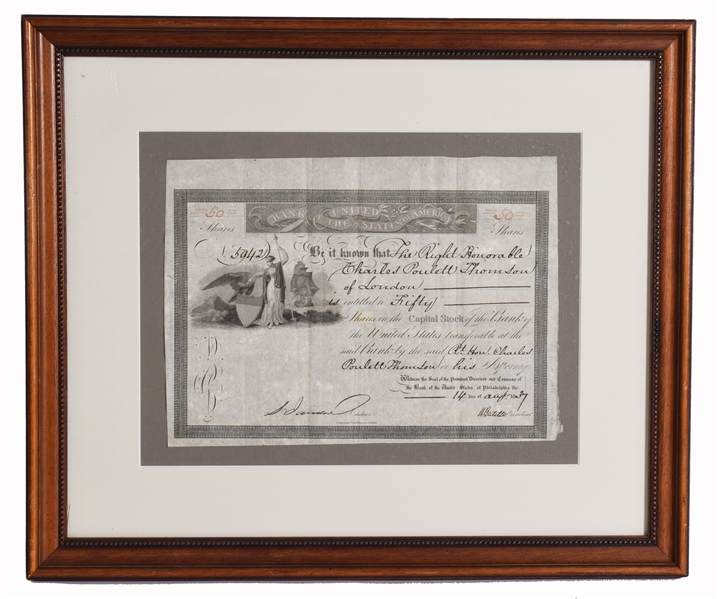 50 50
BANK OF THE UNITED STATES OF AMERICA
Shares Shares
5942 Be it known that The Right Honorable
Charles Poulett Thomson
of London
is entitled to Fifty
Shares in the Capital Stock of the Bank of
the United States transferable at the
said Bank by the said Rt. Hon. Charles
Poulett Thomson or his Attorney
Witness the Seal of the President Directors and Company of
the Bank of the United States at Philadelphia the
14 day of Augt. 1837
Cashier President